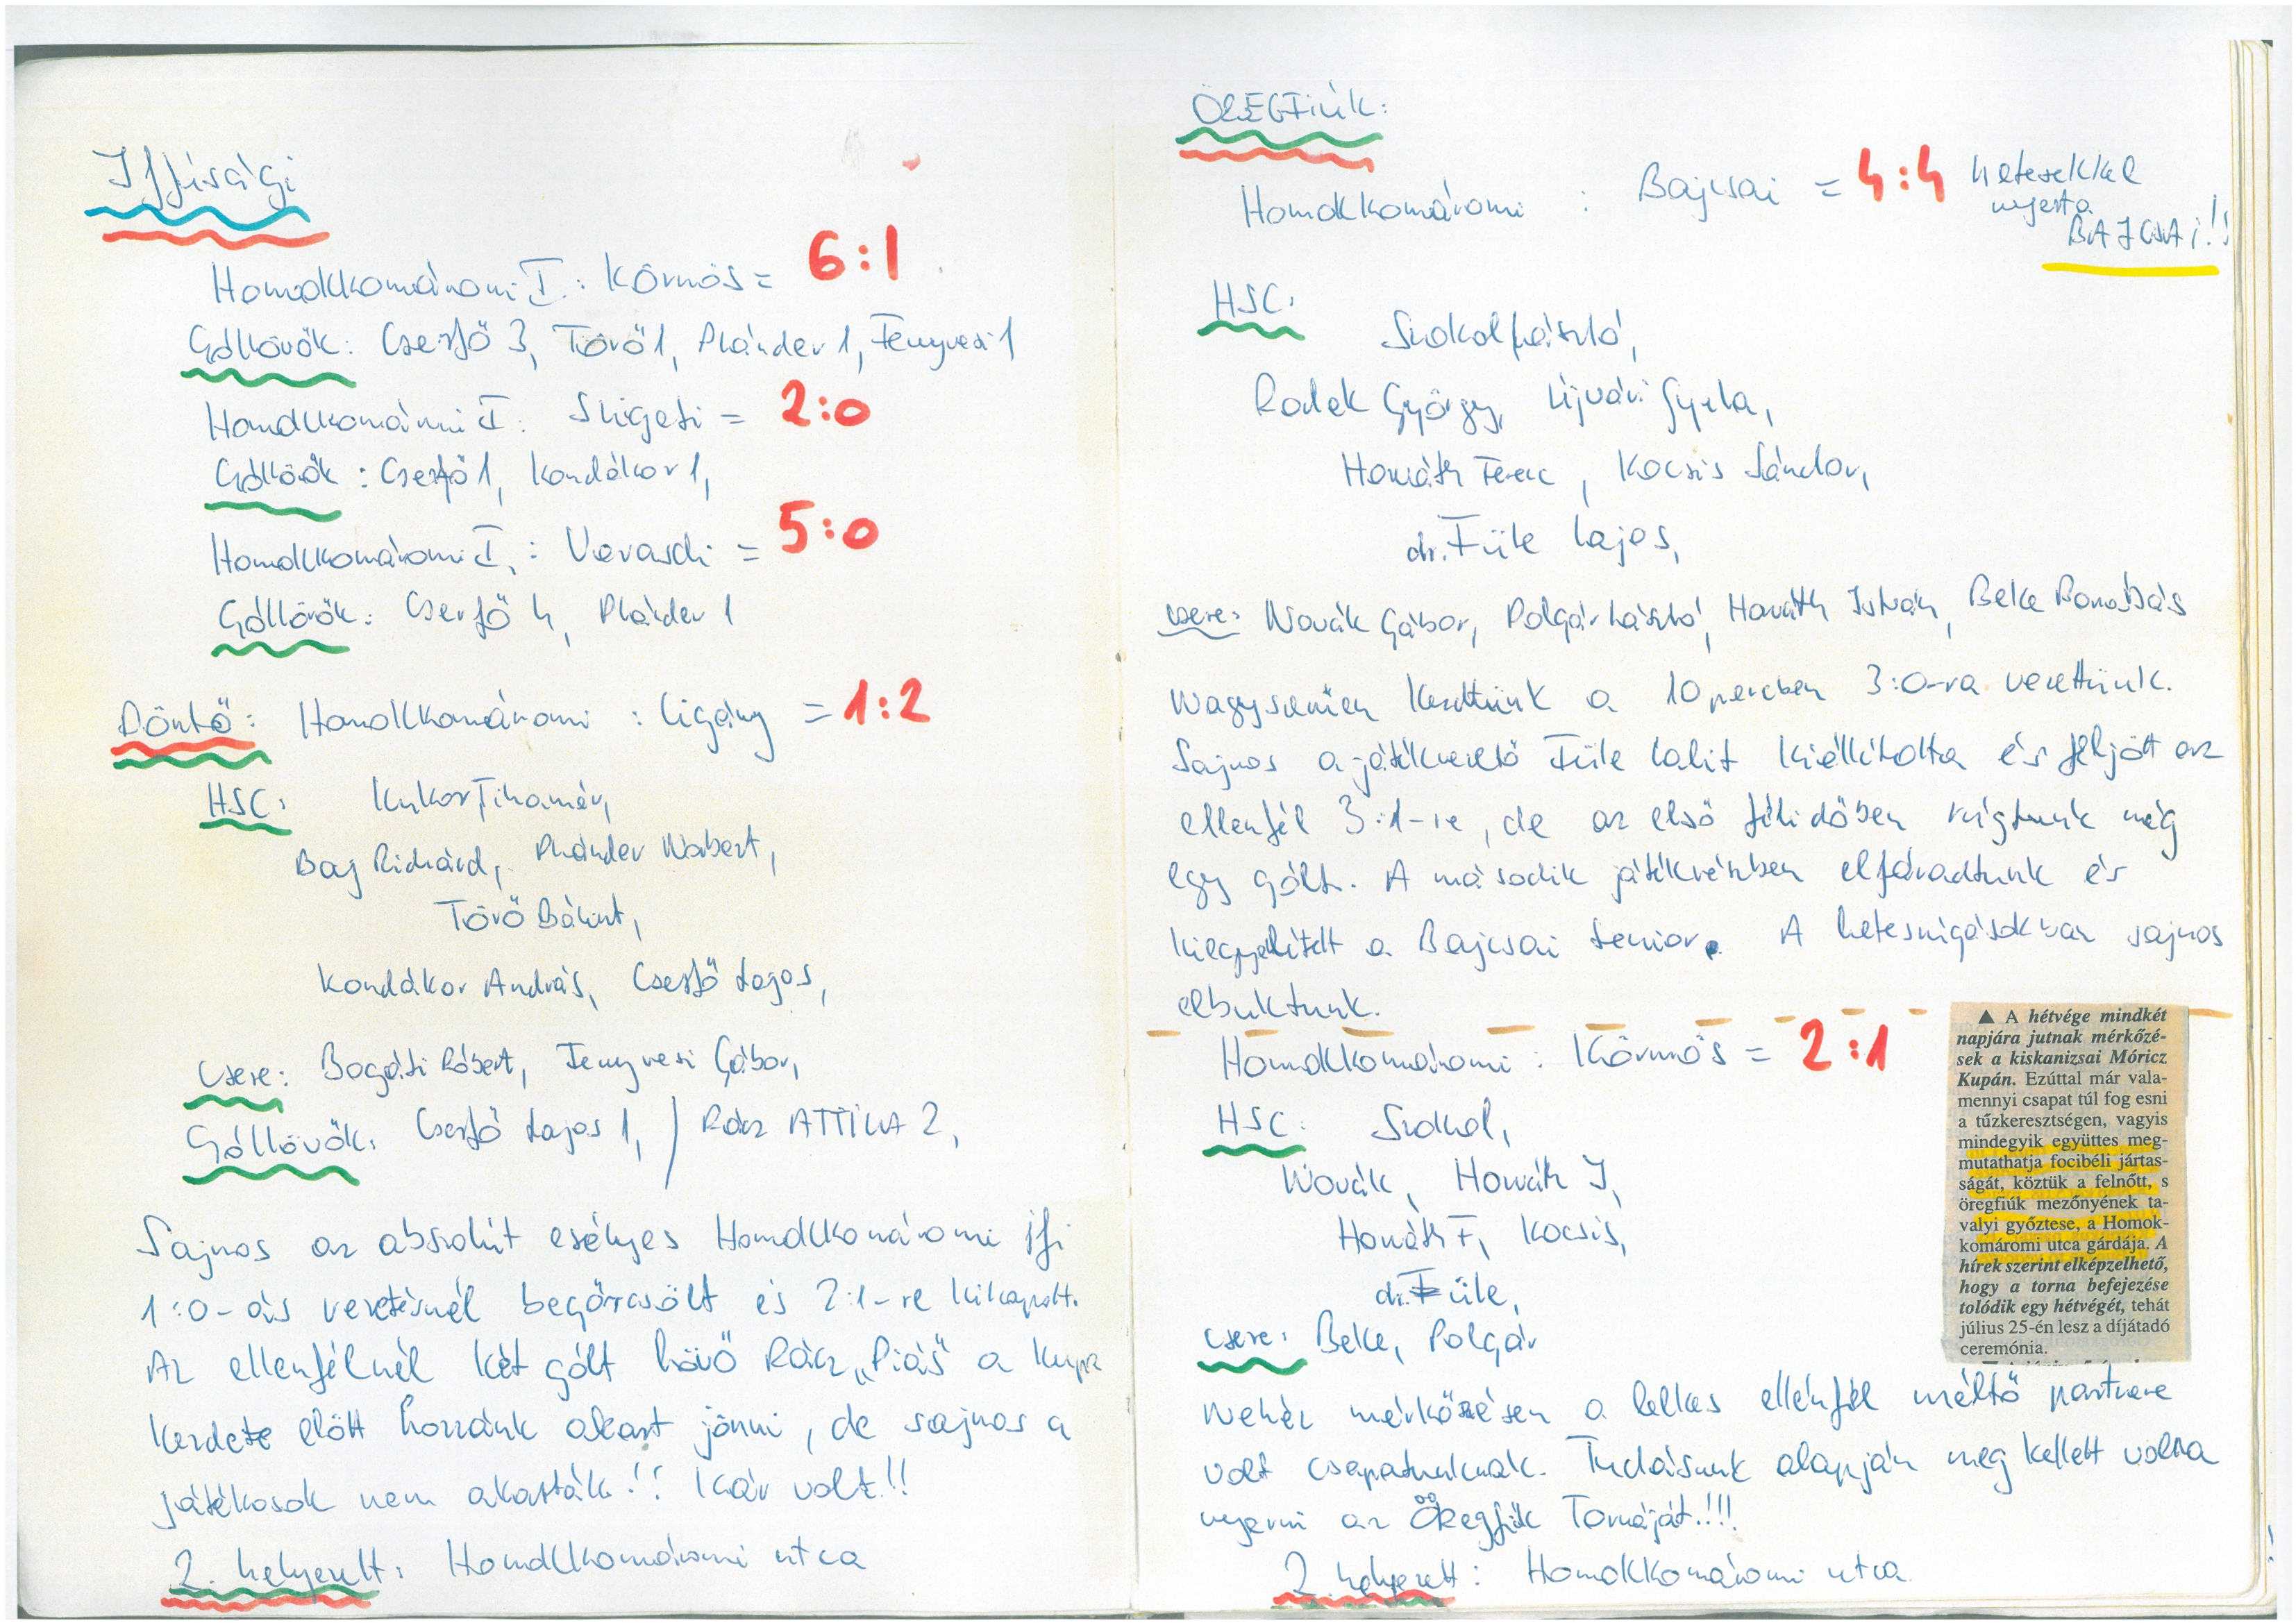 Ifjúsági
Homokkomáromi I. : Körmös = 6:1
Góllövők: Cserfő 3, Törő 1, Plánder 1, Fenyvesi 1
Homokkomáromi I : Szigeti = 2:0
Góllövők : Cserfő 1, Kondákor 1,
Homokkomáromi I. : Varasdi = 5:0
Góllövők : Cserfő 4, Plánder 1
Döntő: Homokkomáromi : Cigány = 1:2
HSC: Kukor Tihamér,
Baj Richárd, Plánder Norbert,
Törő Bálint,
Kondákor András, Cserfő Lajos,
Csere: Bogáti Róbert, Fenyvesi Gábor,
Góllövők: Cserfő Lajos 1, / Rácz ATTILA 2,
Sajnos az abszolút esélyes Homokkomáromi ifi
1:0-ás vezetésnél begörcsölt és 2:1-re kikapott.
Az ellenfélnél két gólt lövő Rácz „Piás" a kupa
kezdete előtt hozzánk akart jönni, de sajnos a
játékosok nem akarták!! Kár volt!!
2. helyezett: Homokkomáromi utca
ÖREGFIÚK:
Homokkomáromi : Bajcsai = 4:4 hetesekkel
nyert a
BAJCSAI!!
HSC:
Szokol László,
Radek György, Újvári Gyula,
Horváth Ferenc, Kocsis Sándor,
dr. Füle Lajos,
csere: Novák Gábor, Polgár László, Horváth István, Beke Barnabás
Nagyszerűen kezdtünk a 10 percben 3:0-ra vezettünk.
Sajnos a játékvezető Füle Lalit kiállította és feljött az
ellenfél 3:1-re, de az első félidőben rúgtunk még
egy gólt. A második játékrészben elfáradtunk és
kiegyenlített a Bajcsai Senior. A hetesrúgásokban sajnos
elbuktunk.
Homokkomáromi : Körmös = 2:1
HSC: Szokol,
Novák, Horváth I,
Horváth F, Kocsis,
dr. Füle,
csere: Beke, Polgár
▲ A hétvége mindkét
napjára jutnak mérkőzé-
sek a kiskanizsai Móricz
Kupán. Ezúttal már vala-
mennyi csapat túl fog esni
a tűzkeresztségen, vagyis
mindegyik együttes meg-
mutathatja focibéli jártas-
ságát, köztük a felnőtt, s
öregfiúk mezőnyének ta-
valyi győztese, a Homok-
komáromi utca gárdája. A
hírek szerint elképzelhető,
hogy a torna befejezése
tolódik egy hétvégét, tehát
július 25-én lesz a díjátadó
ceremónia.
Nehéz mérkőzésen a lelkes ellenfél méltó partnere
volt csapatunknak. Tudásunk alapján meg kellett volna
nyerni az Öregfiúk Tornáját!!!!
2. helyezett: Homokkomáromi utca